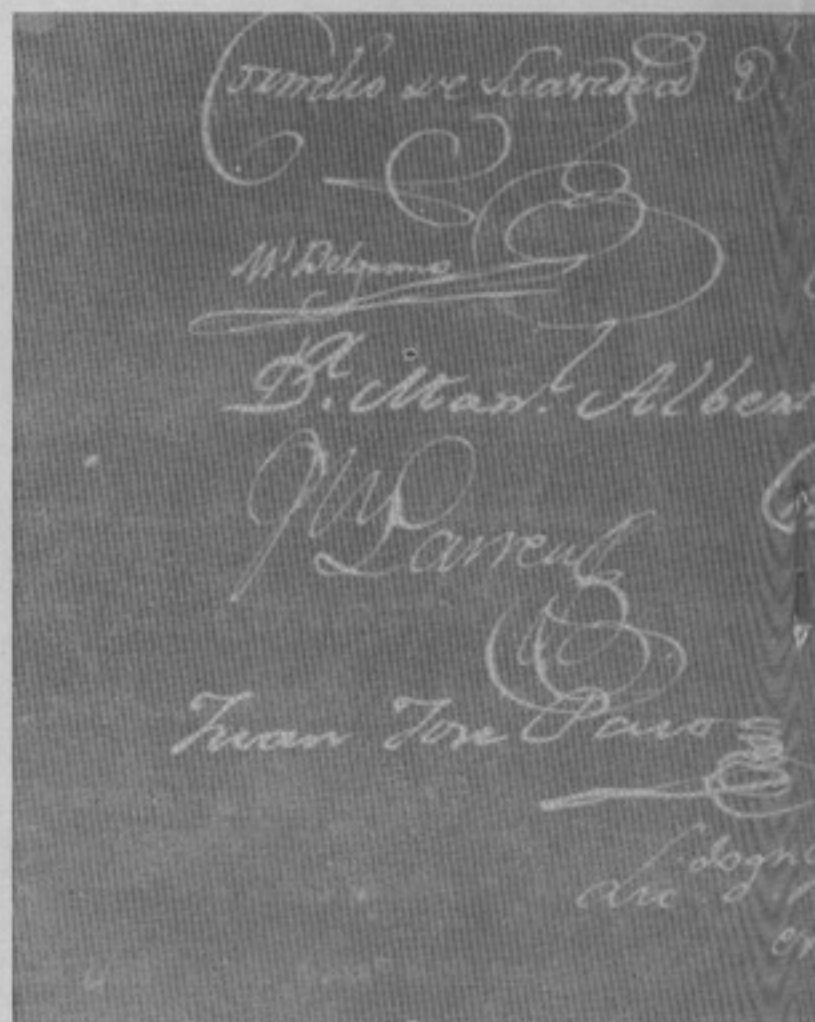 Cornelio de Saavedra D.
Ml Belgrano
Dr. Man.l Alber
M Larrea
Juan Jose Paso